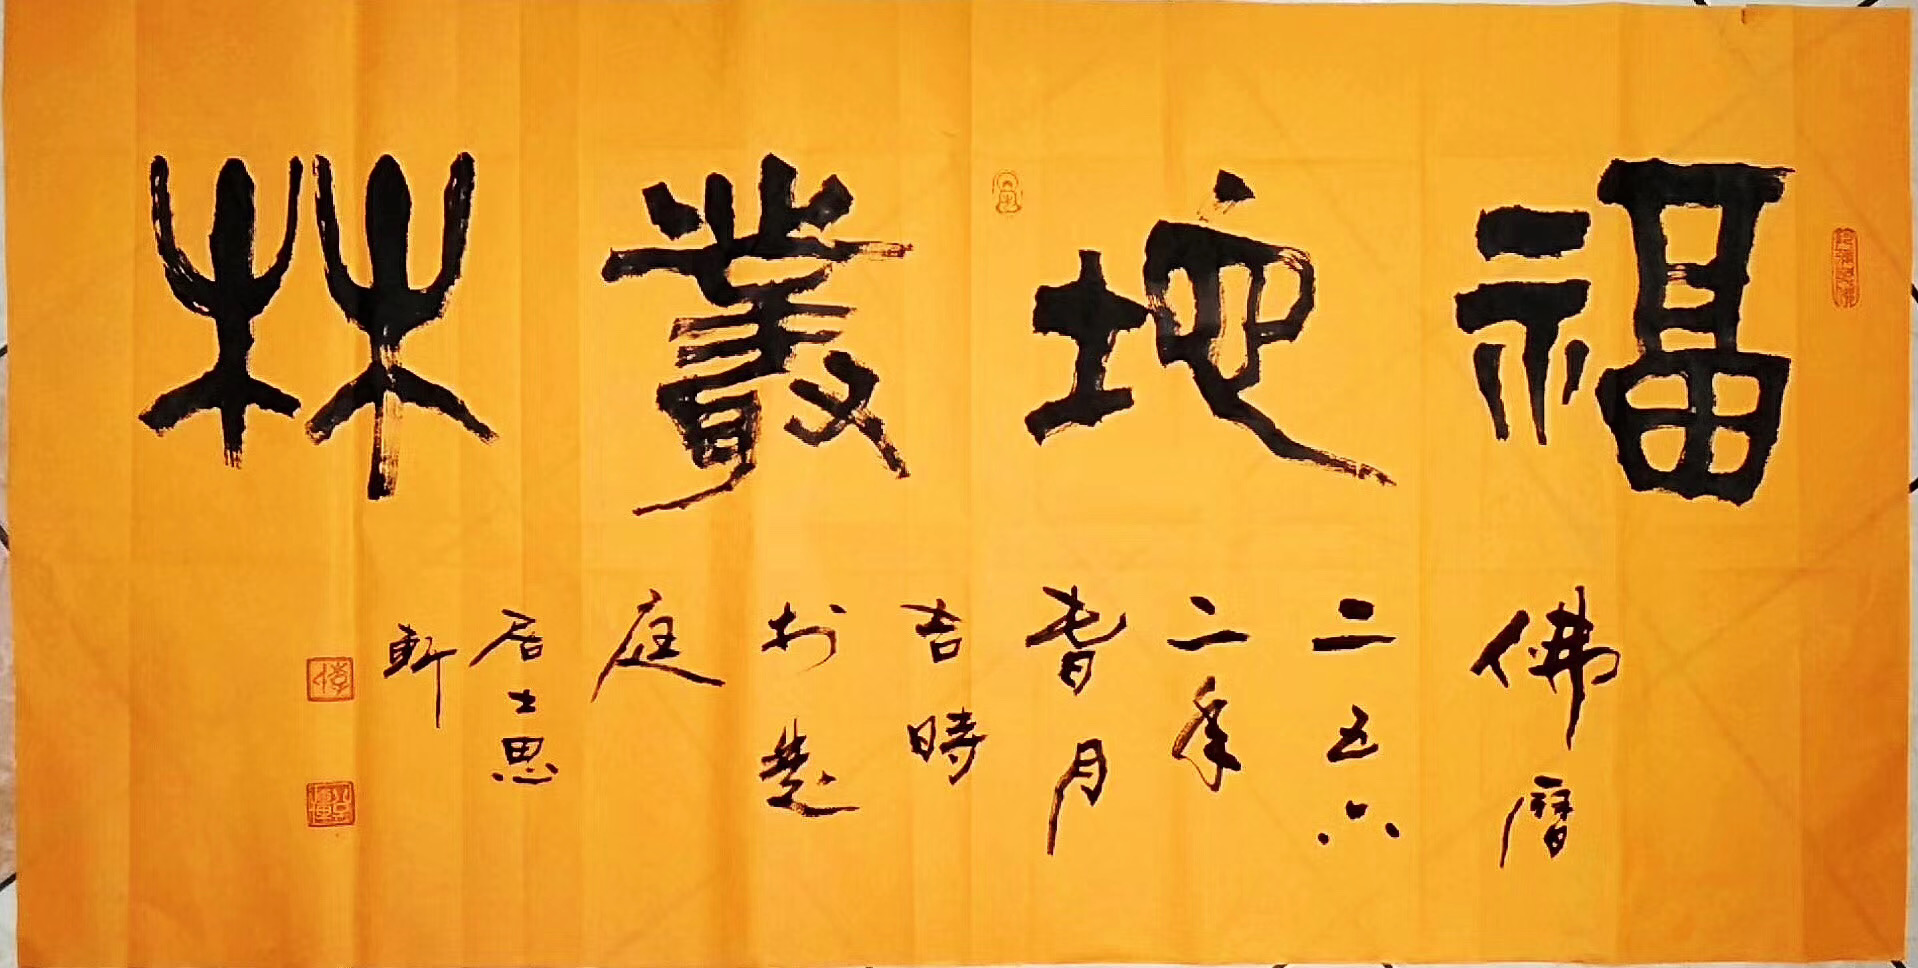 福地叢林
佛曆
二五六
二年
春月
吉時
於楚
庭
居士思
軒